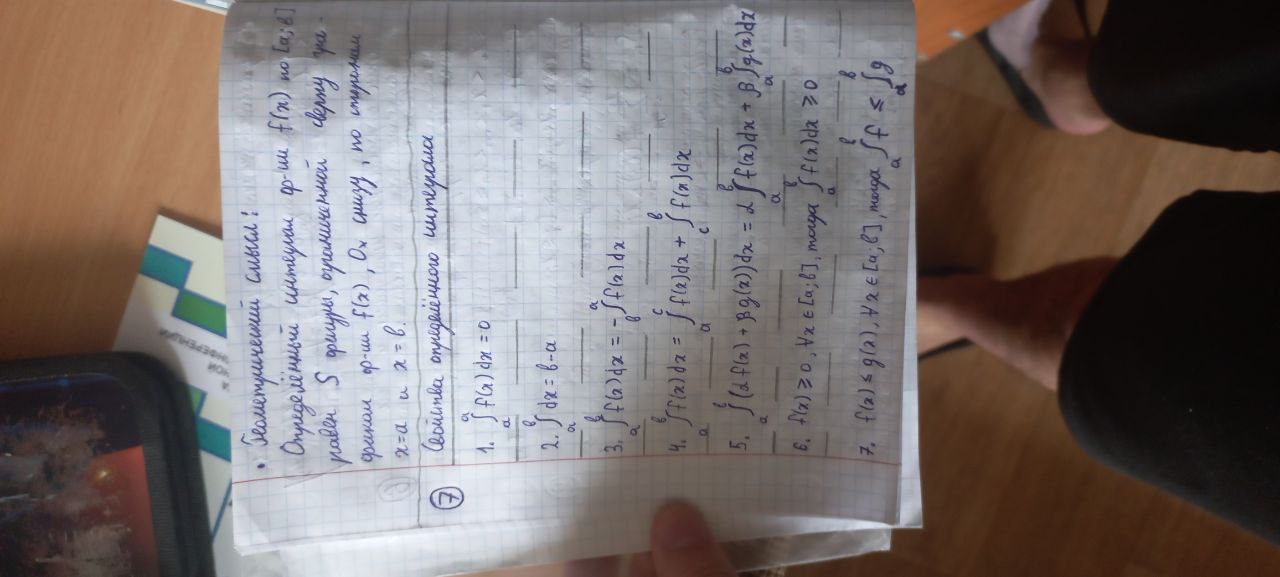 • Геометрический смысл:
Определённый интеграл ф-ии f(x) по [a;b]
равен S фигуры, ограниченной сверху гра-
фиком ф-ии f(x), Ox снизу, по сторонам
x=a и x=b.
⑦ Свойства определённого интеграла
1. ∫ₐᵃ f(x)dx = 0
2. ∫ₐᵇ dx = b-a
3. ∫ₐᵇ f(x)dx = -∫_b^a f(x)dx
4. ∫ₐᵇ f(x)dx = ∫ₐᶜ f(x)dx + ∫_c^b f(x)dx
5. ∫ₐᵇ (αf(x) + βg(x))dx = α∫ₐᵇ f(x)dx + β∫ₐᵇ g(x)dx
6. f(x) ⩾ 0, ∀x ∈ [a;b], тогда ∫ₐᵇ f(x)dx ⩾ 0
7. f(x) ≤ g(x), ∀x ∈ [a;b], тогда ∫ₐᵇ f ≤ ∫ₐᵇ g
НОЙ
НФЕРЕНЦИИ